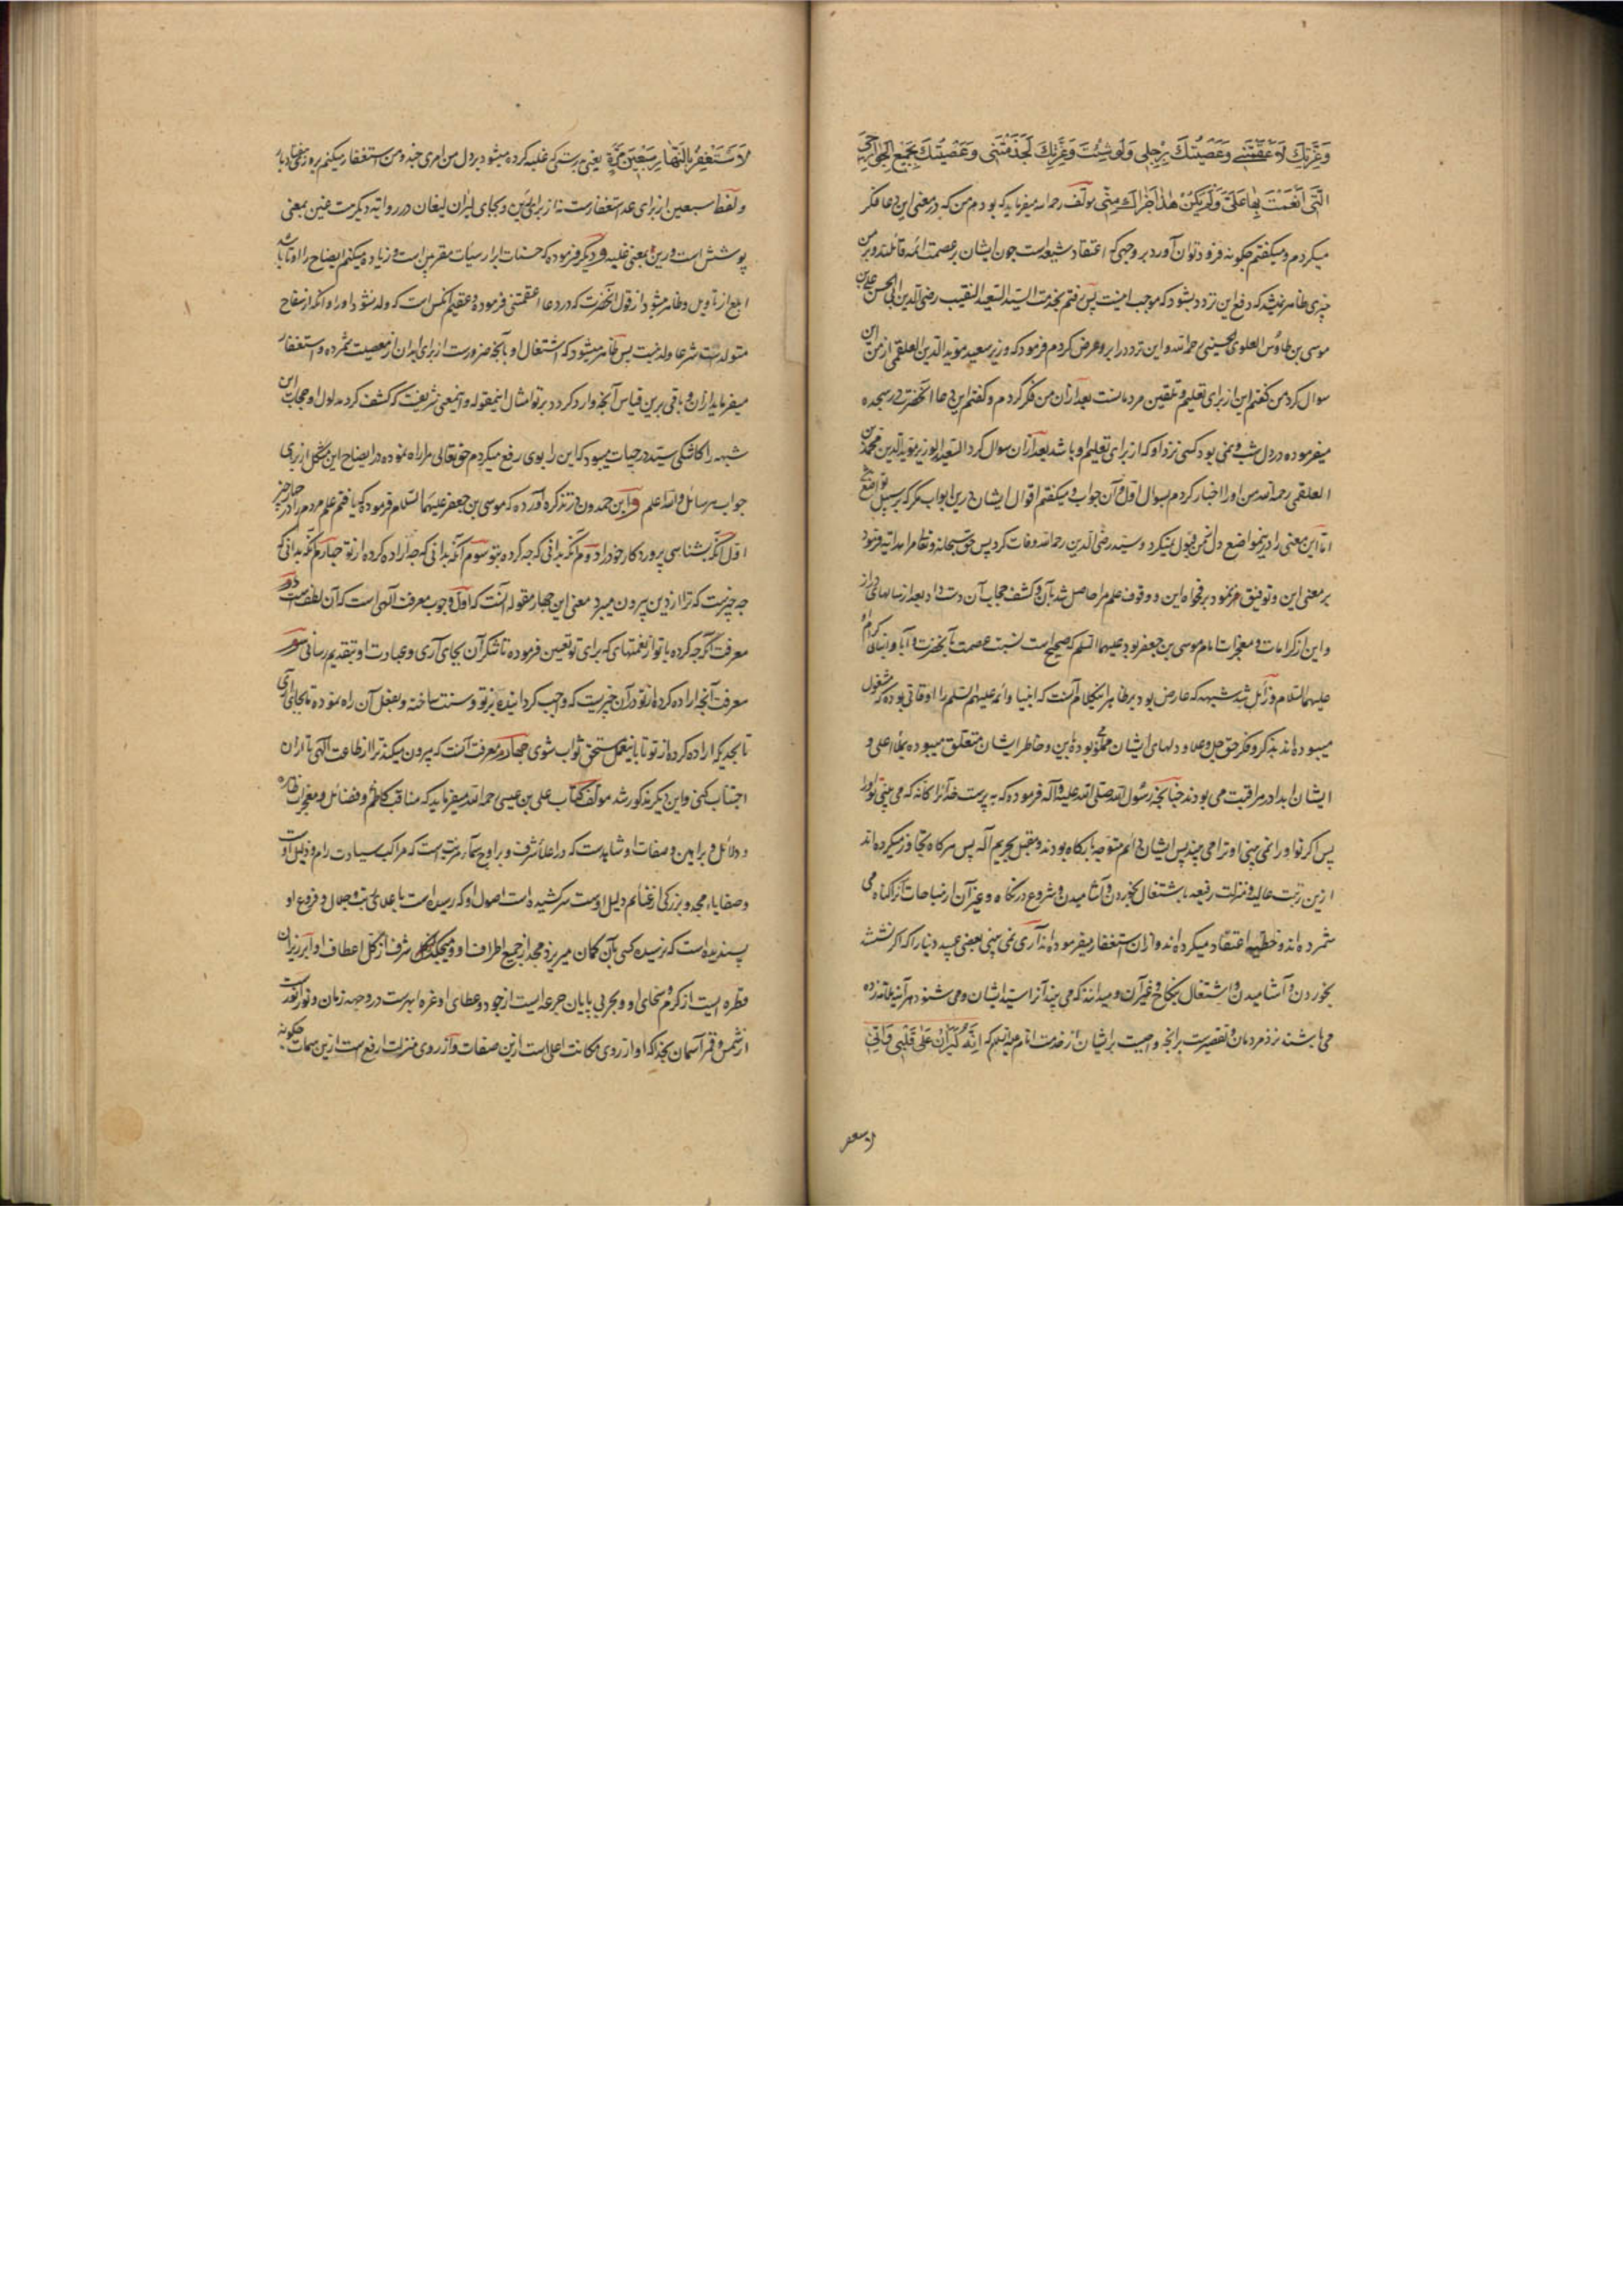 وَعِزَّتِكَ لَاَعْقَمْتَنِي وَعَصَيْتُكَ بِرِجْلِي وَلَوْ شِئْتَ وَعِزَّتِكَ لَجَذَمْتَنِي وَعَصَيْتُكَ بِجَمِيعِ جَوَارِحِي
الَّتِي اَنْعَمْتَ بِهَا عَلَيَّ وَلَمْ يَكُنْ هٰذَا جَزَاكَ مِنِّي مولف رحمه الله میفرماید که بودم من که در معنی این دعا فکر
میکردم و میکفتم چکونه فرود توان آورد بر وجهی که اعتقاد شیعه است چون ایشان بر عصمت ائمه قائلند و بر من
چیزی ظاهر نمیشد که دفع این تردد بشود که موجب امنیت پس رفتم بخدمت السید السعید النقیب رضی الدین ابی الحسن علی بن
موسی بن طاوس العلوی الحسینی رحمه الله و این تردد را برو عرض کردم فرمود که وزیر سعید موید الدین العلقمی از من این
سوال کرد من کفتم این از برای تعلیم و تلقین مردمانست بعد ازان من فکر کردم و کفتم این دعا آنحضرت در سجده
میفرموده در دل شب و نمی بود کسی نزد او که از برای تعلیم او باشد بعد ازان سوال کرد السعید الوزیر موید الدین محمد بن
العلقمی رحمه الله من او را اخبار کردم بسوال اول و آن جواب و میکفتم اقوال ایشان درین ابواب مکر که بر سبیل تواضع
اما این معنی را درینمواضع دل من قبول نمیکرد و سید رضی الدین رحمه الله وفات کرد پس حق سبحانه و تعالی مرا هدایه فرمود
بر معنی این و توفیق بر فحوای این و وقوف علم مرا حاصل شد بآن و کشف حجاب آن دست داد بعد از سالهای دراز
و این از کرامات و معجزات امام موسی بن جعفر بود علیهما السلم که صحیح است نسبت عصمت بآنحضرت و آبا و ابنای کرام
علیهم السلام و زائل شد شبهه که عارض بود بر ظاهر اینکلام آنست که انبیا و ائمه علیهم السلم را اوقاتی بوده که مشغول
میبوده اند بذکر و فکر حق جل و علا و دلهای ایشان مملو بوده باین و خاطر ایشان متعلق میبوده بملأ اعلی و
ایشان ابدا در مراقبت می بودند چنانچه رسول الله صلی الله علیه و آله فرموده که به پرست خدا را کانه که می بینی تو او را
پس اکر تو او را نمی بینی او ترا می بیند پس ایشان دائم متوجه باو بودند و مقبل پس هرکاه تجاوز میکرده اند
ازین رتبت عالیه و منزلت رفیعه باشتغال بخوردن و آشامیدن و شروع در نکاح و غیر آن از مباحات آنرا کناه می
شمرده اند و خطیئه اعتقاد میکرده اند و ازان استغفار میفرموده اند آری نمی بینی بعضی عبید دنیا را که اکر نشست
بخوردن و آشامیدن و اشتغال بنکاح و غیر آن و میداند که می بیند آنرا سید ایشان و می شنود هر آینه ملامت زده
می باشند نزد مردمان تقصیرست اِنَّهُ لَيُرَانُ عَلَى قَلْبِي وَاِنِّي
لاستغفر
لَاَسْتَغْفِرُ بِالنَّهَارِ سَبْعِينَ مَرَّةً یعنی بدرستی که غلبه کرده میشود بر دل من امری چند و من استغفار میکنم بروز هفتاد بار
و لفظ سبعین از برای عد استغفارست نه از برای رین و بجای لیران لیغان در روایه دیکرست غین بمعنی
پوشش است و رین بمعنی غلبه و دیکر فرموده که حسنات ابرار سیئات مقربین است و زیاده میکنم ایضاح را تا باشد
ابلغ از تاویل و ظاهر میشود از قول آنحضرت که در دعا اعقمتنی فرموده و عقیم آنکس است که ولد نشود او را و آنکه از سفاح
متولدست شرعا ولد نیست پس ظاهر میشود که اشتغال او بآنچه ضرورت از برای ابدان از معصیت شمرده و استغفار
میفرماید ازان و باقی برین قیاس آنچه وارد کردد بر تو امثال اینمقوله و اینمعنی شریفست که کشف کرد مدلول او حجاب این
شبهه را کاشکی سید در حیات میبود که این را بوی رفع میکردم حق تعالی مرا راه نموده در ایضاح این مشکل از برای
جواب هر سائل و الله اعلم و ابن حمدون در تذکره آورده که موسی بن جعفر علیهما السلام فرموده که یافتم علم مردم را در چهار چیز
اول آنکه بشناسی پروردکار خود را دوم آنکه بدانی که چه کرده بتو سوم آنکه بدانی که چه اراده کرده از تو چهارم آنکه بدانی که
چه چیزست که ترا از دین بیرون میبرد معنی این چهار مقوله آنست که اول وجوب معرفت الهی است که آن لطفست دوم
معرفت آنکه چه کرده با تو از نعمتهای که برای تو تعیین فرموده تا شکر آن بجای آری و عبادت او بتقدیم رسانی سوم
معرفت آنچه اراده کرده از تو در آن چیزیست که واجب کردانیده بر تو و سنت ساخته و بفعل آن راه نموده تا بجای آری
تا بحدیکه اراده کرده از تو تا باینعمل مستحق ثواب شوی چهارم معرفت آنست که بیرون میکند ترا از طاعت الهی تا ازان
اجتناب کنی و این دیکر مذکور شد مولف کتاب علی بن عیسی رحمه الله میفرماید که مناقب کاظم و فضائل و معجزات ظاهره
و دلائل و براهین و صفات او شاهدست که در اعلاء شرف و بر اوج سمآء مزیت است که مراکب سیادت رام و ذلیل اوست
و صفایاء مجد و بزرکی از غنائم دلیل اوست سرکشیده است اصول او که رسیده است باعلای رتبت و جلال و فروع او
پسندیده است که نرسیده کسی بآن کمان میریزد مجد از جمیع اطراف او و میچکد شرف از کل اعطاف او ابر ریزان
قطره ایست از کرم و سخای او و بحر بی پایان جرعه ایست از جود و عطای او غره ابهرست در وجهه زمان و نور افکنست
از شمس و قمر آسمان بخدا که او از روی مکانت اعلی است ازین صفات و از روی منزلت ارفع ست ازین سمات چکونه